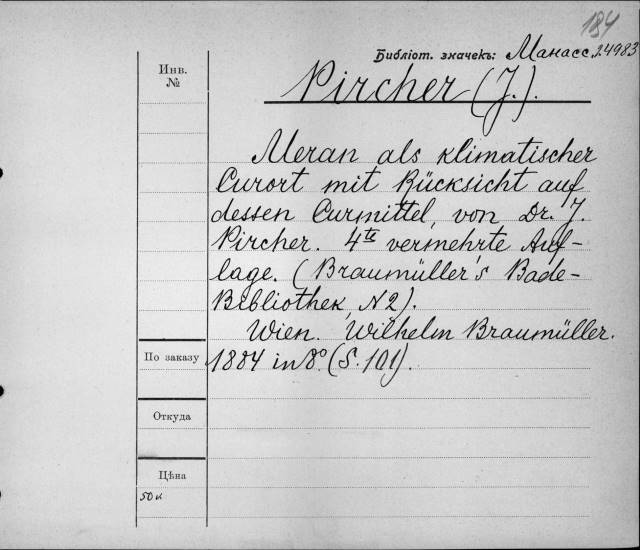 184
Библіот. значекъ: Манасс. 24983
Инв.
№
Pircher (J.).
Meran als klimatischer
Curort mit Rücksicht auf
dessen Curmittel, von Dr. J.
Pircher. 4te vermehrte Auf-
lage. (Braumüller's Bade-
Bibliothek, N2).
Wien. Wilhelm Braumüller.
По заказу
1884 in 8º. (S. 101).
Откуда
Цѣна
50 к